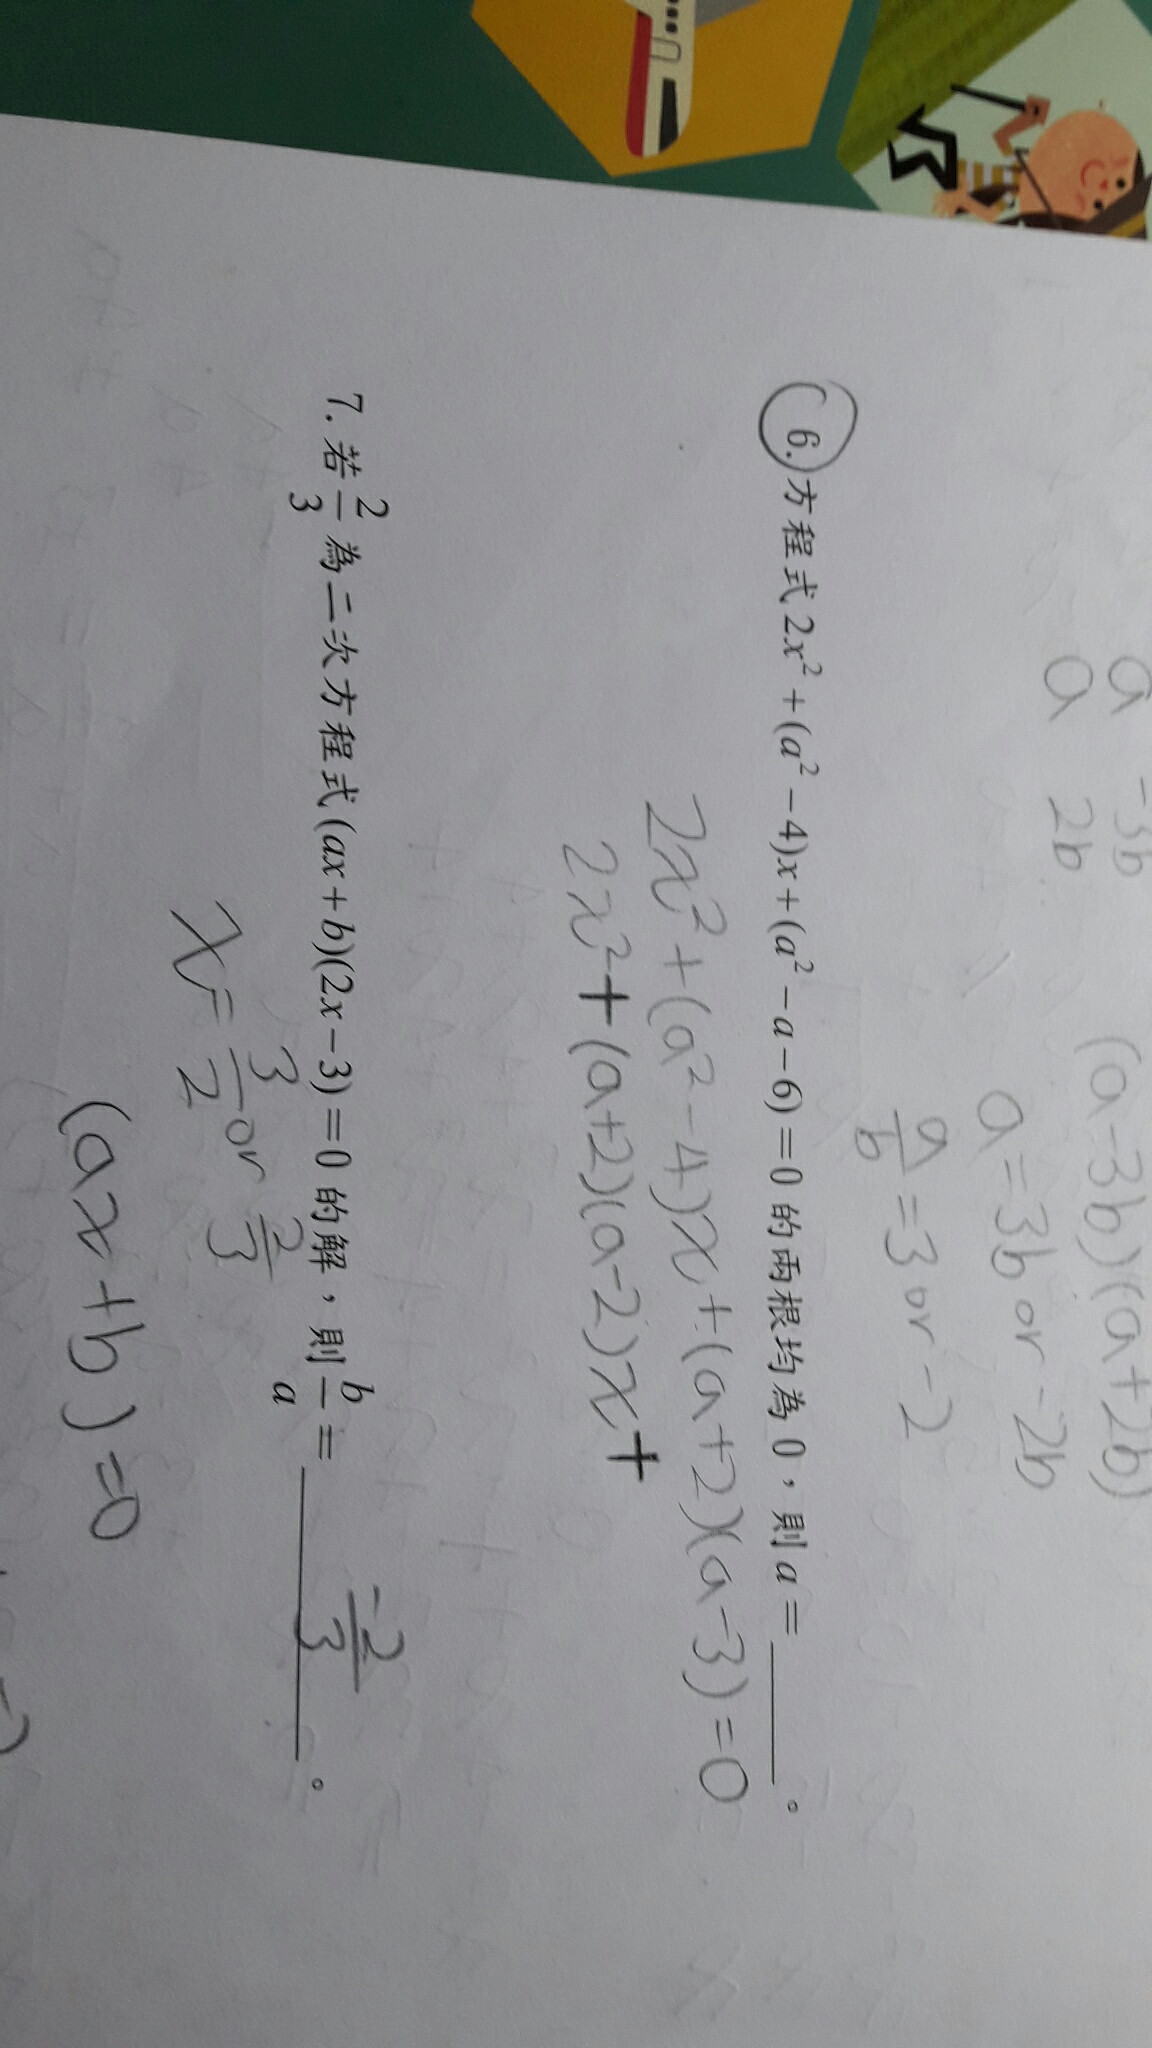 a -3b
a 2b
(a-3b)(a+2b)
a=3b or -2b
a/b=3 or -2
6. 方程式 2x²+(a²-4)x+(a²-a-6)=0 的兩根均為 0，則 a=______。
2x²+(a²-4)x+(a+2)(a-3)=0
2x²+(a+2)(a-2)x+
7. 若 2/3 為二次方程式 (ax+b)(2x-3)=0 的解，則 b/a=______。
-2/3
x=3/2 or 2/3
(ax+b)=0